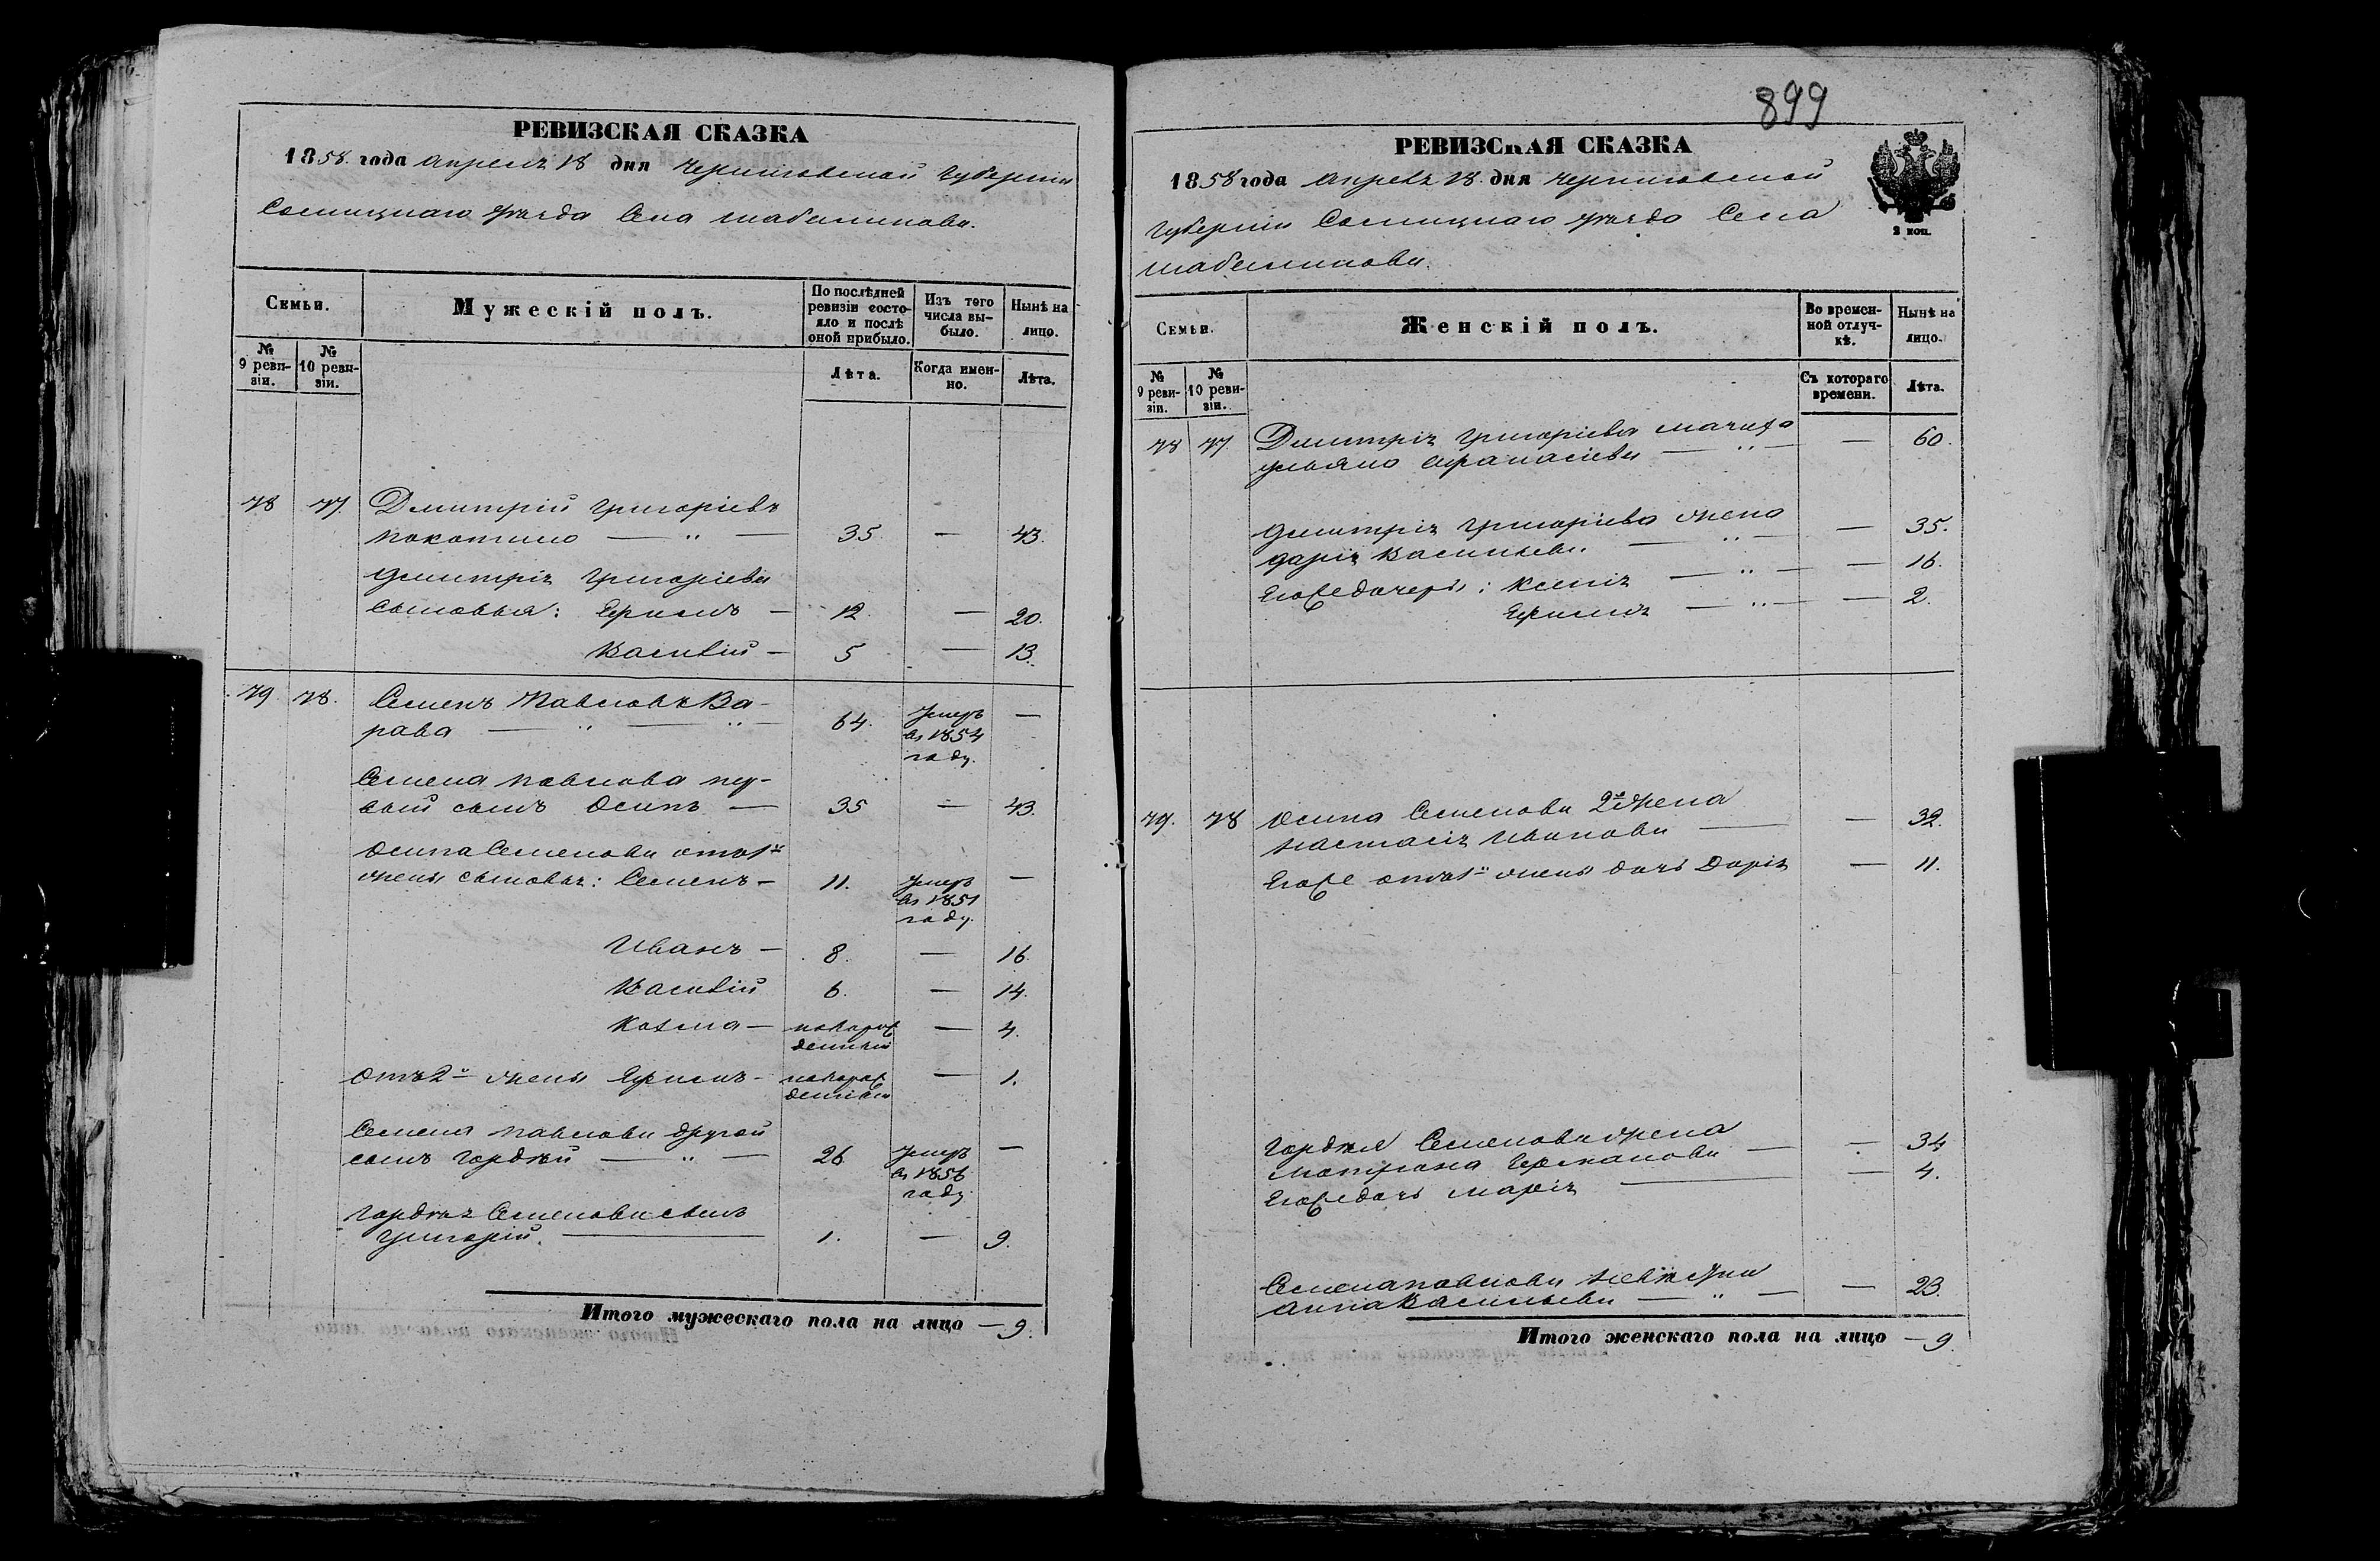 РЕВИЗСКАЯ СКАЗКА
1858 года Апреля 18 дня Черниговской Губернiи
Сосницкаго уѣзда Села Шабалинова.
Семьи.
Мужескiй полъ.
По послѣдней ревизiи состояло и послѣ оной прибыло.
Изъ того числа выбыло.
Нынѣ на лицо.
№ 9 ревизiи.
№ 10 ревизiи.
Лѣта.
Когда именно.
Лѣта.
78 77. Дмитрiй Григорiевъ
Покотило — " — 35 — 43.
Дмитрiя Григорiева
сыновья: Ефимъ — 12. — 20.
Василiй — 5 — 13.
79. 78. Семенъ Павловъ Ва-
рава — " — " — 64. Умеръ въ 1854 году. —
Семена Павлова пер-
вый сынъ Осипъ — 35 — 43.
Осипа Семенова отъ 1й
жены сыновья: Семенъ — 11. Умеръ въ 1851 году. —
Иванъ — 8. — 16.
Василiй 6. — 14.
Козма — новорожденный — 4.
Отъ 2й жены Ефимъ — новорожденный — 1.
Семена Павлова другой
сынъ Гордѣй — " — 26 Умеръ въ 1856 году. —
Гордѣя Семенова сынъ
Григорiй. — 1. — 9.
Итого мужескаго пола на лицо — 9.
899
РЕВИЗСКАЯ СКАЗКА
1858 года Апреля 18. дня Черниговской
Губернiи Сосницкаго уѣзда Села
Шабалинова.
2 коп.
Семьи.
Женскiй полъ.
Во временной отлучкѣ.
Нынѣ на лицо.
№ 9 ревизiи.
№ 10 ревизiи.
Съ котораго времени.
Лѣта.
78 77. Дмитрiя Григорiева мачиха
Ульяна Афанасiева — " — — 60.
Дмитрiя Григорiева жена
Дарiя Васильева — " — — 35.
Его же дочери: Ксенiя — " — — 16.
Ефимiя — " — — 2.
79. 78 Осипа Семенова 2я жена
Настасiя Иванова — — 32.
Его же отъ 1й жены дочь Дарiя — 11.
Гордѣя Семенова жена
Матрона Германова — — 34
Его же дочь Марiя — — 4.
Семена Павлова
Анна Васильева — " — — 23.
Итого женскаго пола на лицо — 9.